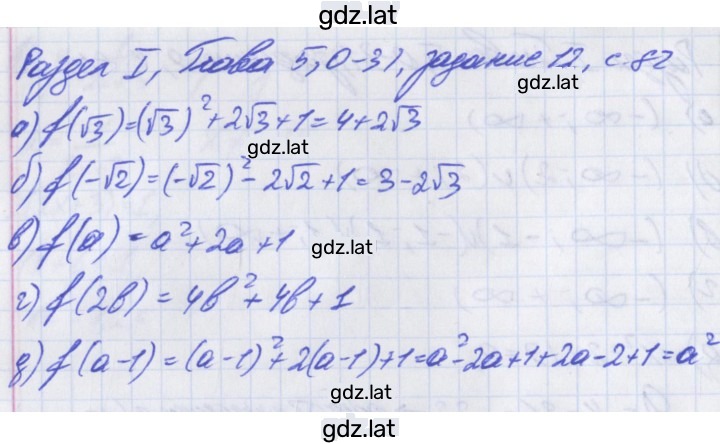 gdz.lat
Раздел I, Глава 5, О-31, задание 12, с. 82
gdz.lat
а) f(√3) = (√3)² + 2√3 + 1 = 4 + 2√3
gdz.lat
б) f(-√2) = (-√2)² - 2√2 + 1 = 3 - 2√3
в) f(a) = a² + 2a + 1
gdz.lat
г) f(2b) = 4b² + 4b + 1
д) f(a-1) = (a-1)² + 2(a-1) + 1 = a² - 2a + 1 + 2a - 2 + 1 = a²
gdz.lat
gdz.lat